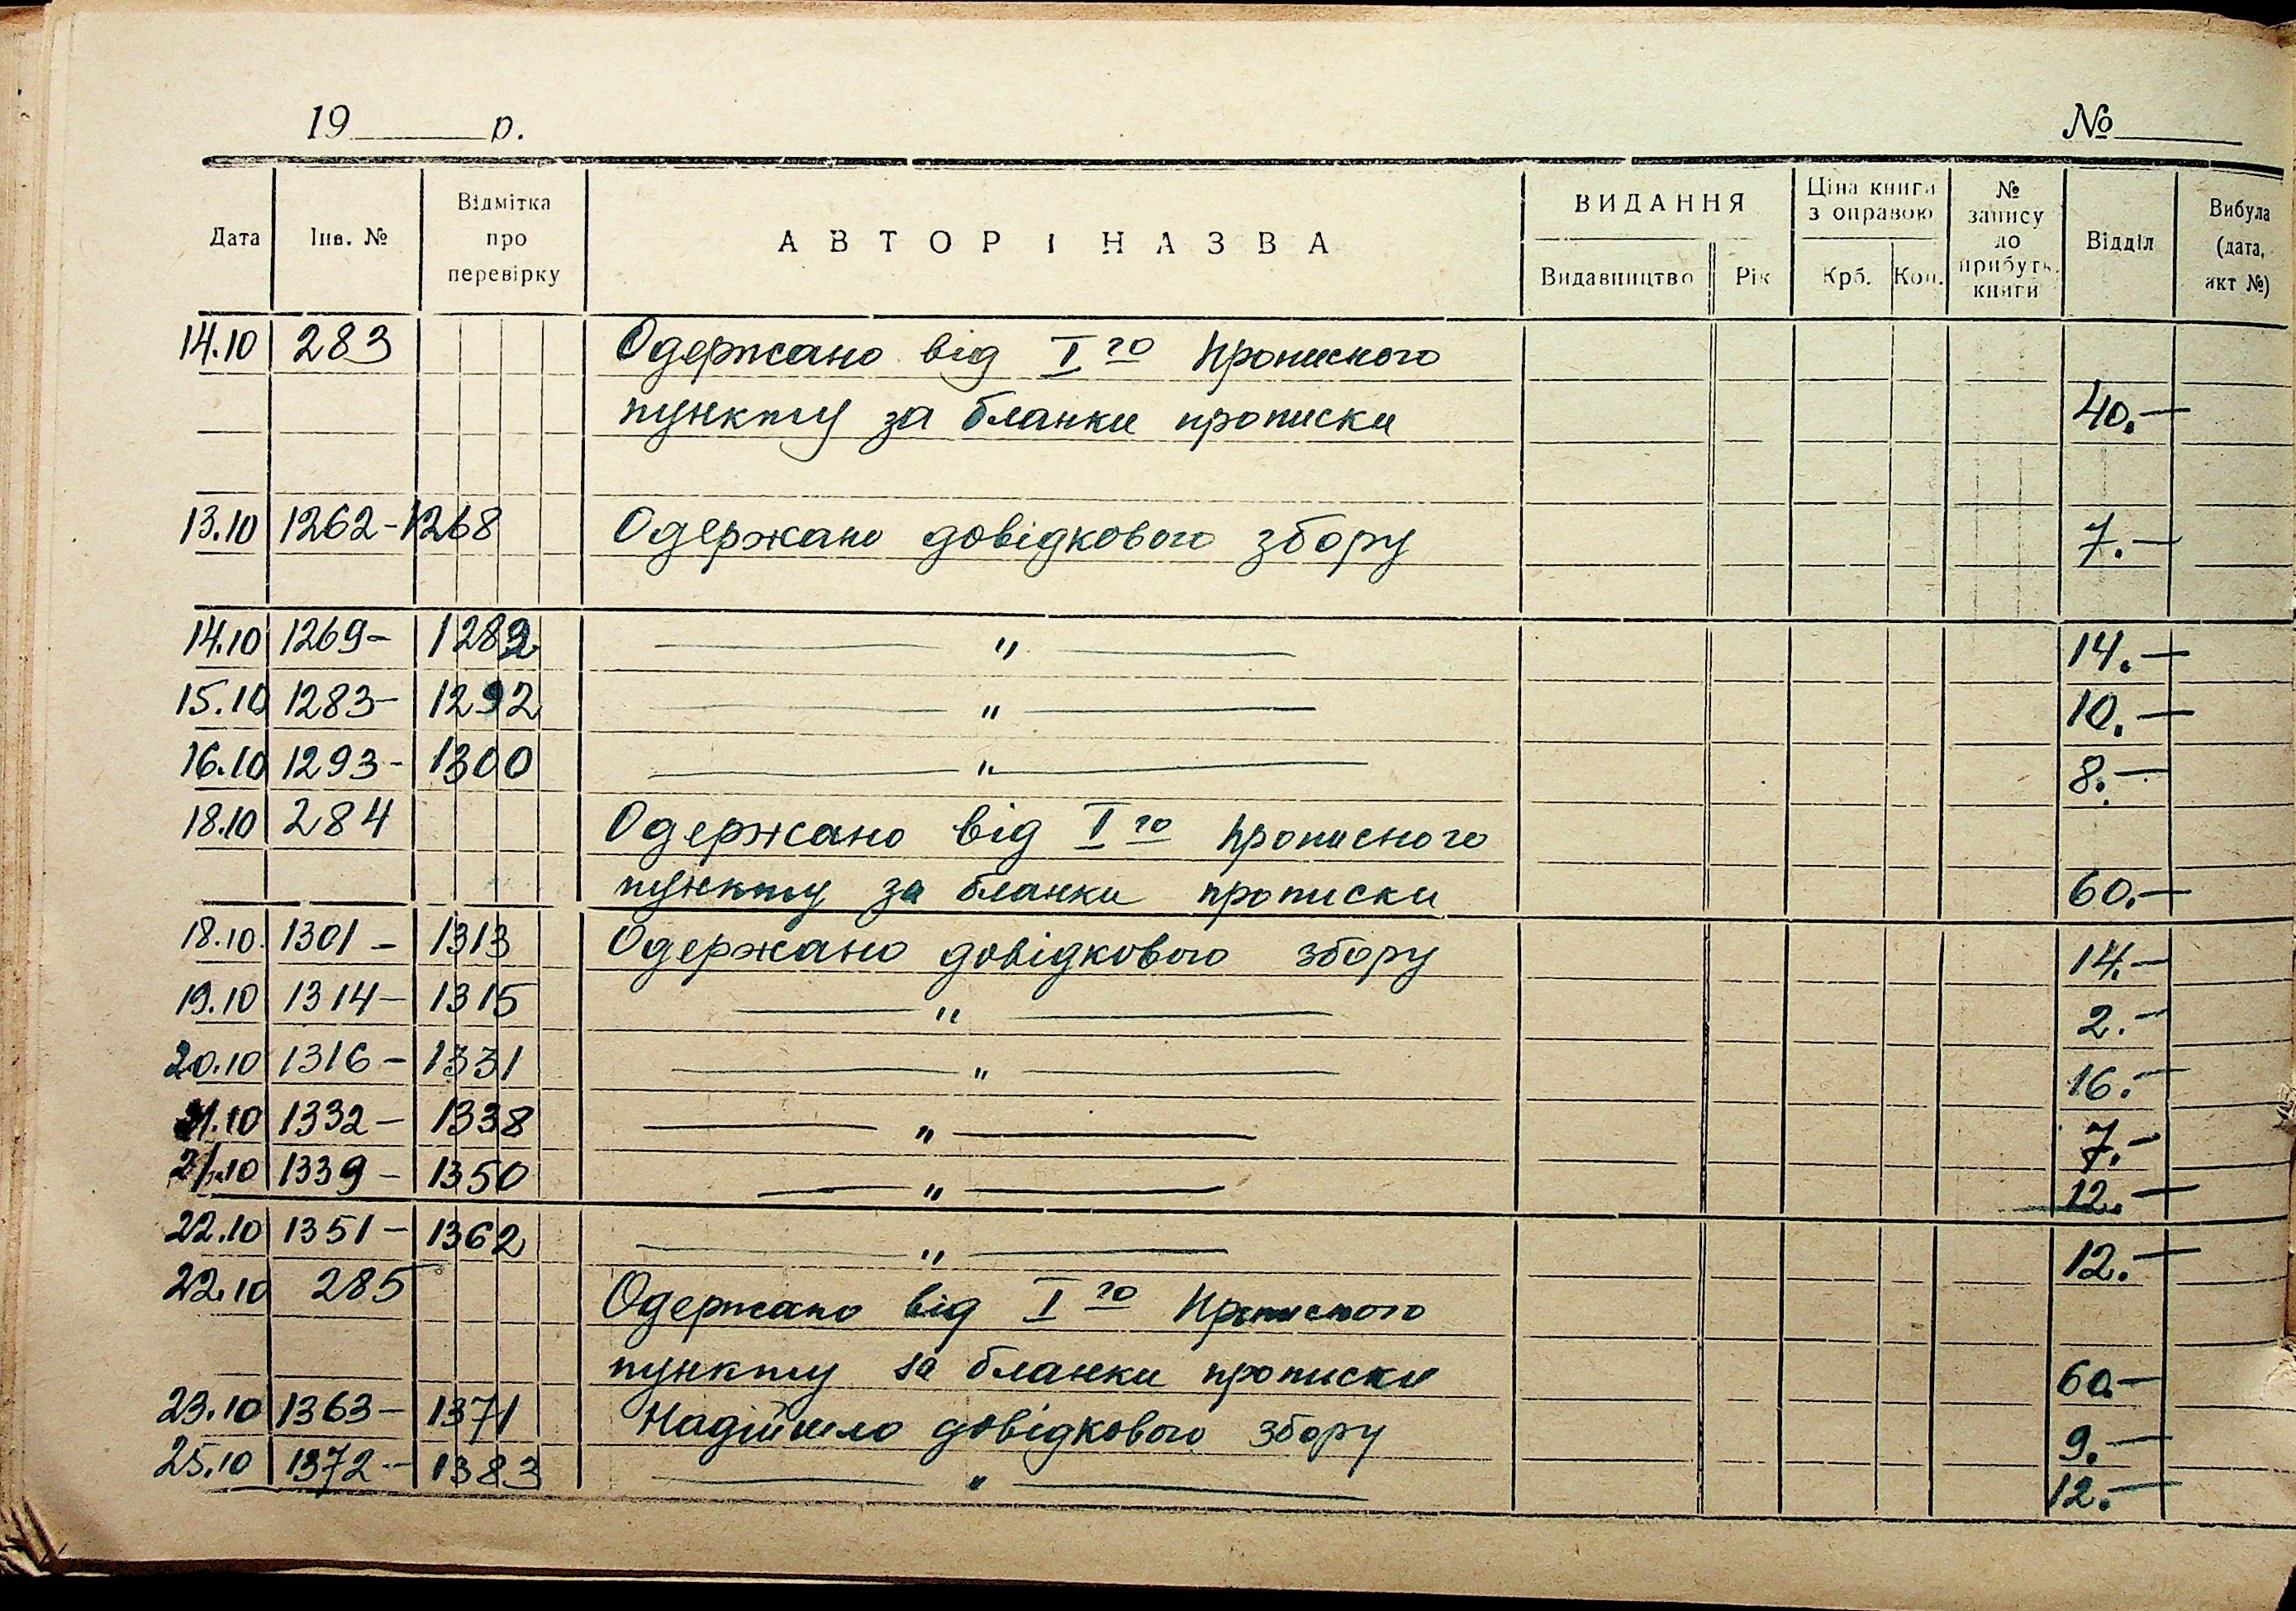 19 р. №
Дата Інв. № Відмітка про перевірку АВТОР І НАЗВА ВИДАННЯ Видавництво Рік Ціна книги з оправою Крб. Коп. № запису до прибутк. книги Відділ Вибула (дата, акт №)
14.10 283 Одержано від I го Прописного
пункту за бланки прописки 40.—
13.10 1262-1268 Одержано довідкового збору 7.—
14.10 1269- 1282 — " — 14.—
15.10 1283- 1292 — " — 10.—
16.10 1293- 1300 — " — 8.—
18.10 284 Одержано від I го прописного
пункту за бланки прописки 60.—
18.10. 1301 - 1313 Одержано довідкового збору 14.—
19.10 1314- 1315 — " — 2.—
20.10 1316 - 1331 — " — 16.—
21.10 1332- 1338 — " — 7.—
1339 - 1350 — " — 12.—
22.10 1351 - 1362 — " — 12.—
22.10 285 Одержано від I го Прописного
пункту за бланки прописки 60—
23.10 1363- 1371 Надійшло довідкового збору 9.—
25.10 1372- 1383 — " — 12.—